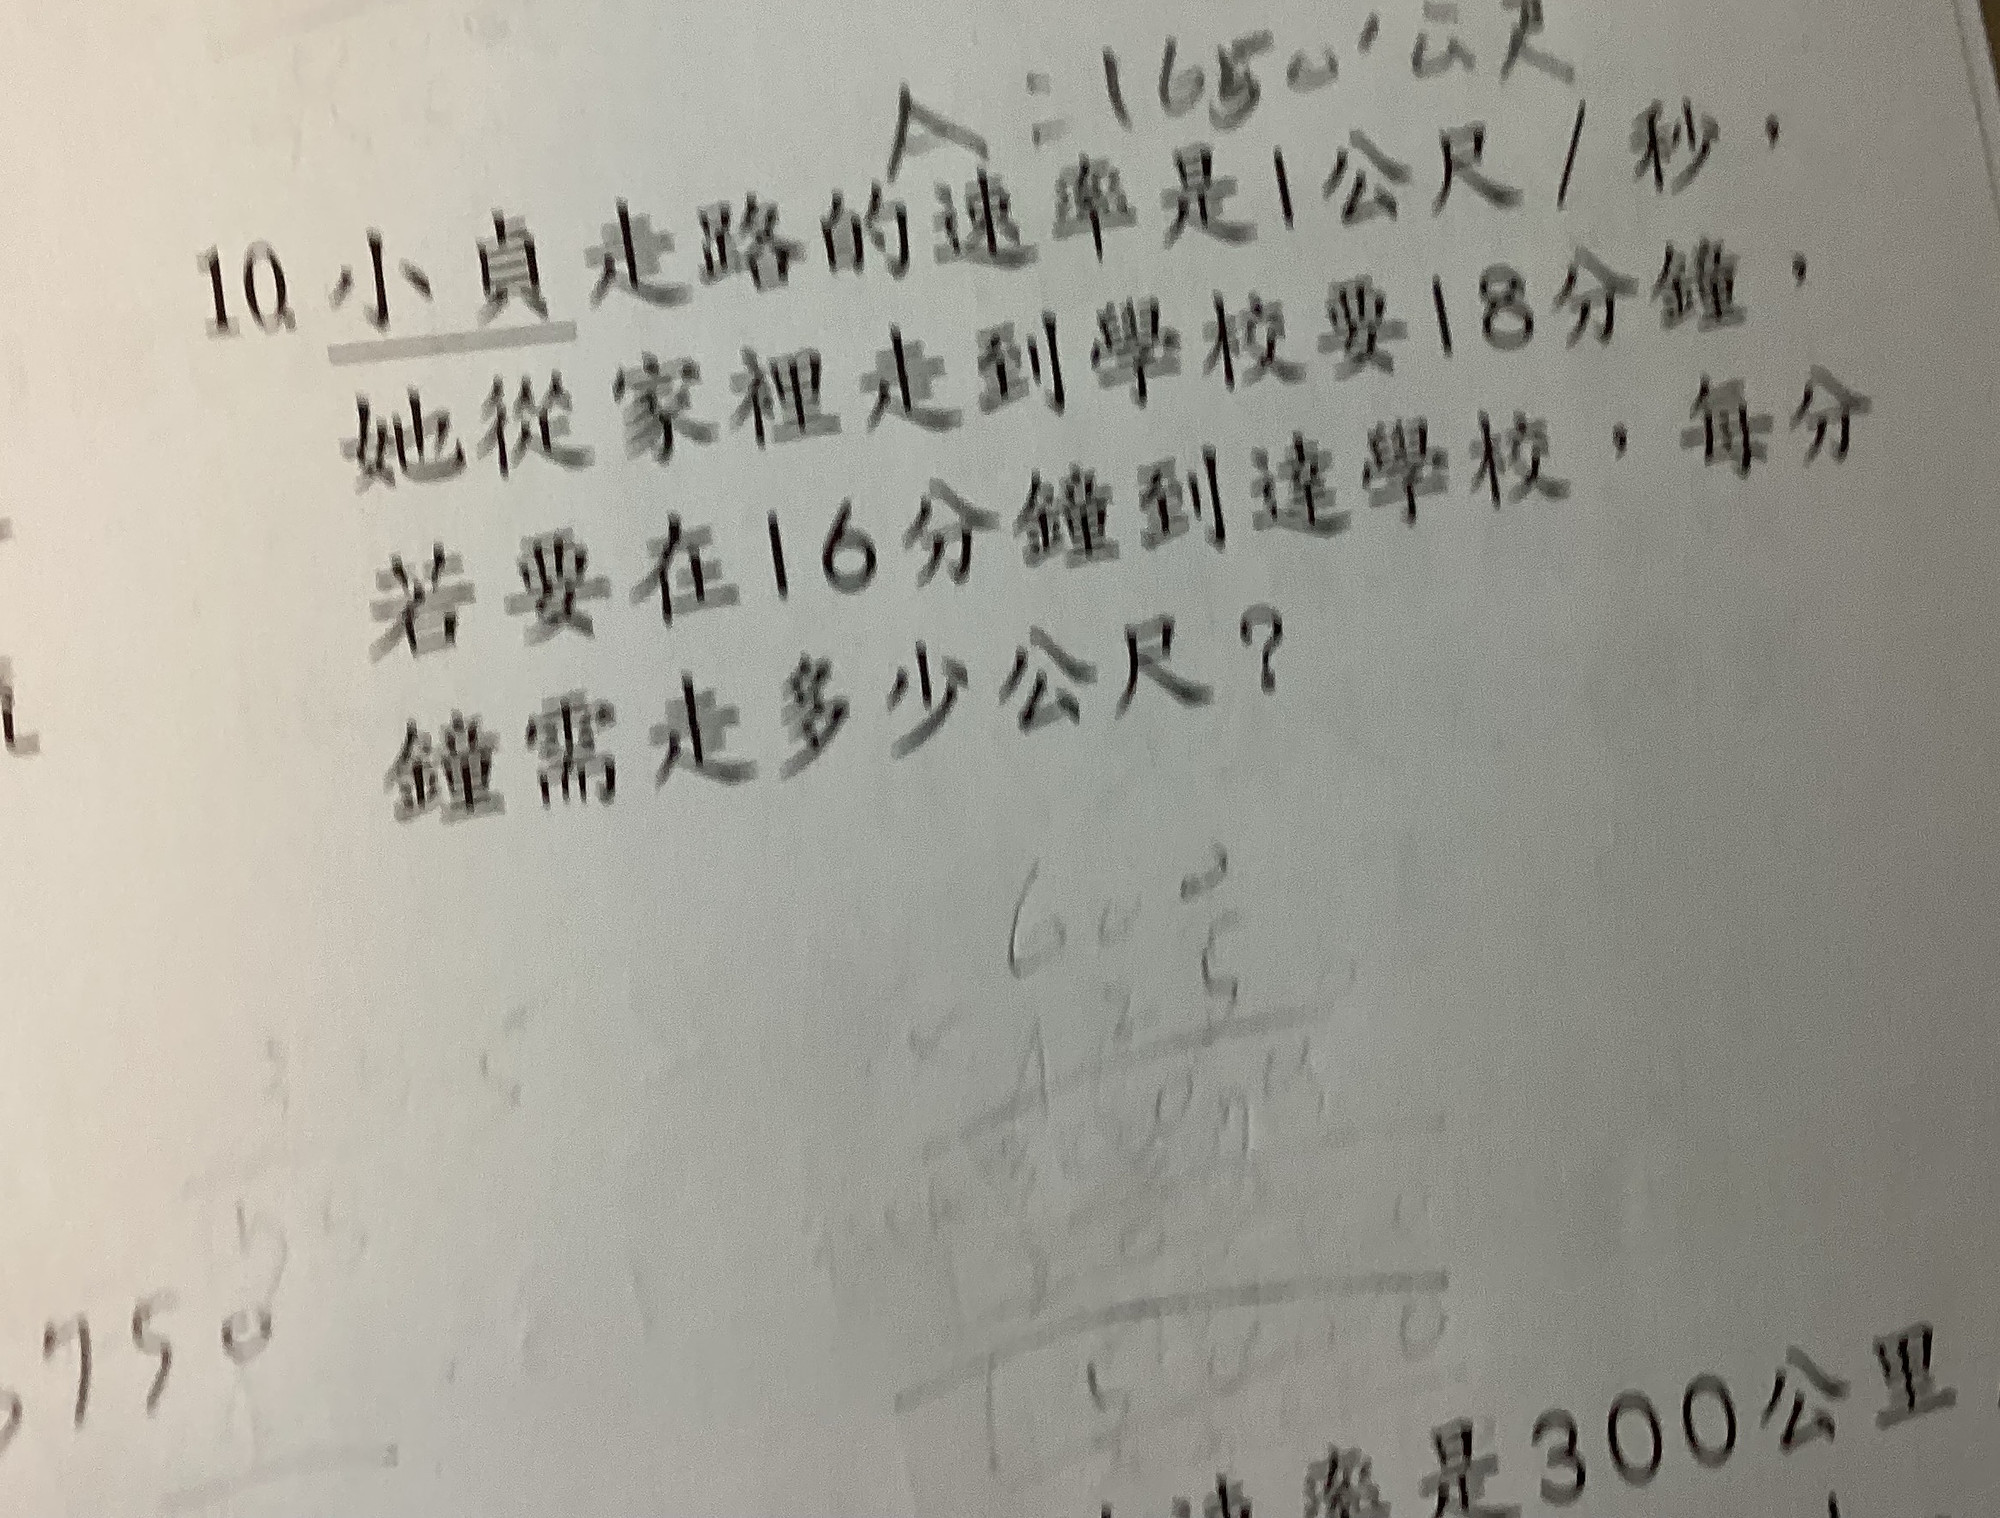 A:1650公尺
10. 小貞走路的速率是1公尺/秒，
她從家裡走到學校要18分鐘，
若要在16分鐘到達學校，每分
鐘需走多少公尺？
750
速率是300公里